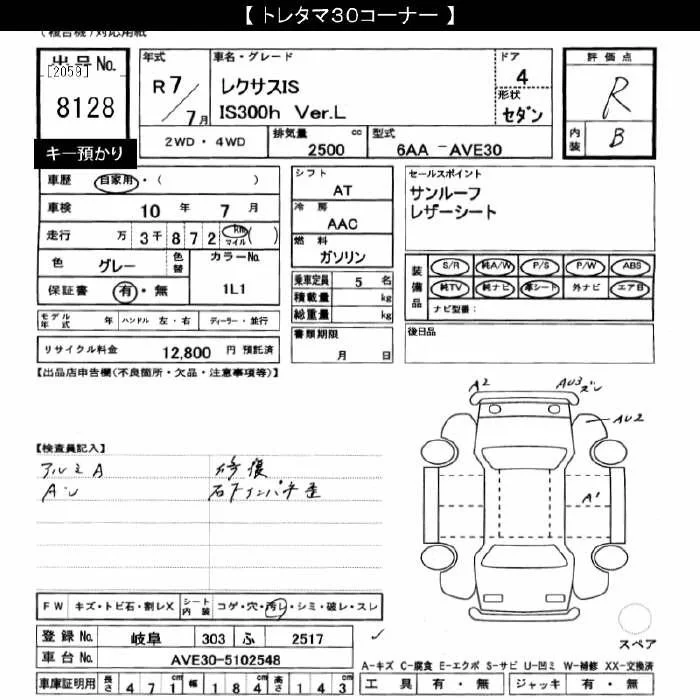 【 トレタマ30コーナー 】
(複合機)対応用紙
出品No.
[2059]
8128
キー預かり
年式
R7/7月
車名・グレード
レクサスIS
IS300h Ver.L
ドア
4
形状
セダン
評価点
R
内装
B
2WD・4WD
排気量 cc
2500
型式
6AA -AVE30
車歴 自家用・( )
車検 10年 7月
走行 万 3千 8 7 2 km マイル ( )
色 グレー 色替
カラーNo.
1L1
保証書 有・無
シフト
AT
冷房
AAC
燃料
ガソリン
乗車定員 5 名
積載量 kg
総重量 kg
セールスポイント
サンルーフ
レザーシート
装備品
S/R 純A/W P/S P/W ABS
純TV 純ナビ 革シート 外ナビ エアB
ナビ型番:
モデル年式 年 ハンドル 左・右 ディーラー・並行
書類期限
月 日
後日品
リサイクル料金 12,800 円 預託済
【出品店申告欄(不良箇所・欠品・注意事項等)】
A2
AU3
ズレ
AU2
A1
【検査員記入】
アルミA 修復
石下インパネ歪
FW キズ・トビ石・割レX シート内装 コゲ・穴・汚レ・シミ・破レ・スレ
登録No. 岐阜 303 ふ 2517
車台No. AVE30-5102548
車庫証明用 長さ 471 幅 184 高さ 143
スペア
A-キズ C-腐食 E-エクボ S-サビ U-凹ミ W-補修 XX-交換済
工具 有・無 ジャッキ 有・無